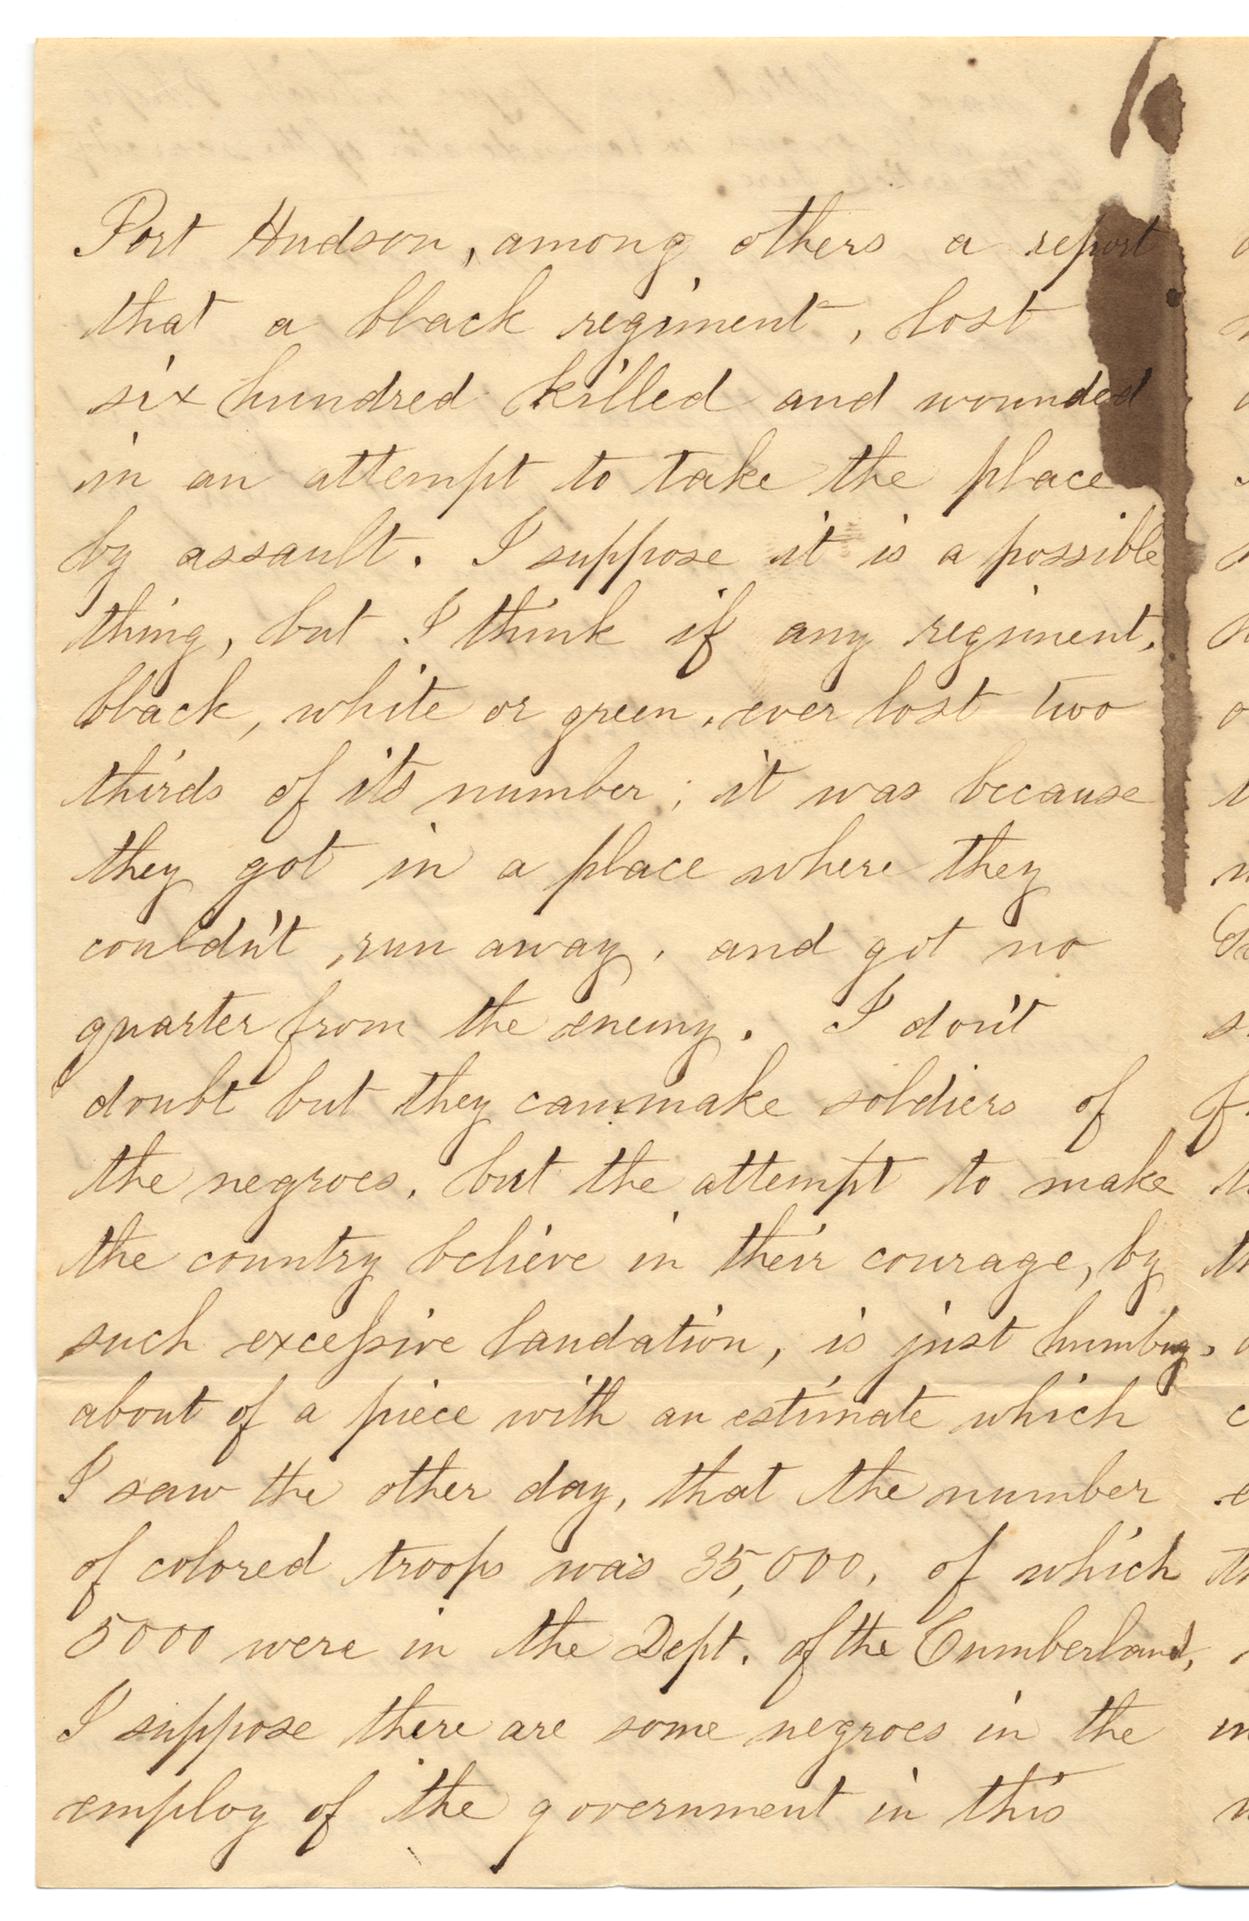 Port Hudson, among others a report
that a black regiment, lost
six hundred killed and wounded
in an attempt to take the place
by assault. I suppose it is a possible
thing, but I think if any regiment,
black, white or green, ever lost two
thirds of its number; it was because
they got in a place where they
couldn't run away, and got no
quarter from the enemy. I don't
doubt but they can make soldiers of
the negroes, but the attempt to make
the country believe in their courage, by
such excessive laudation, is just humbug,
about of a piece with an estimate which
I saw the other day, that the number
of colored troops was 35,000, of which
5000 were in the Dept. of the Cumberland,
I suppose there are some negroes in the
employ of the government in this